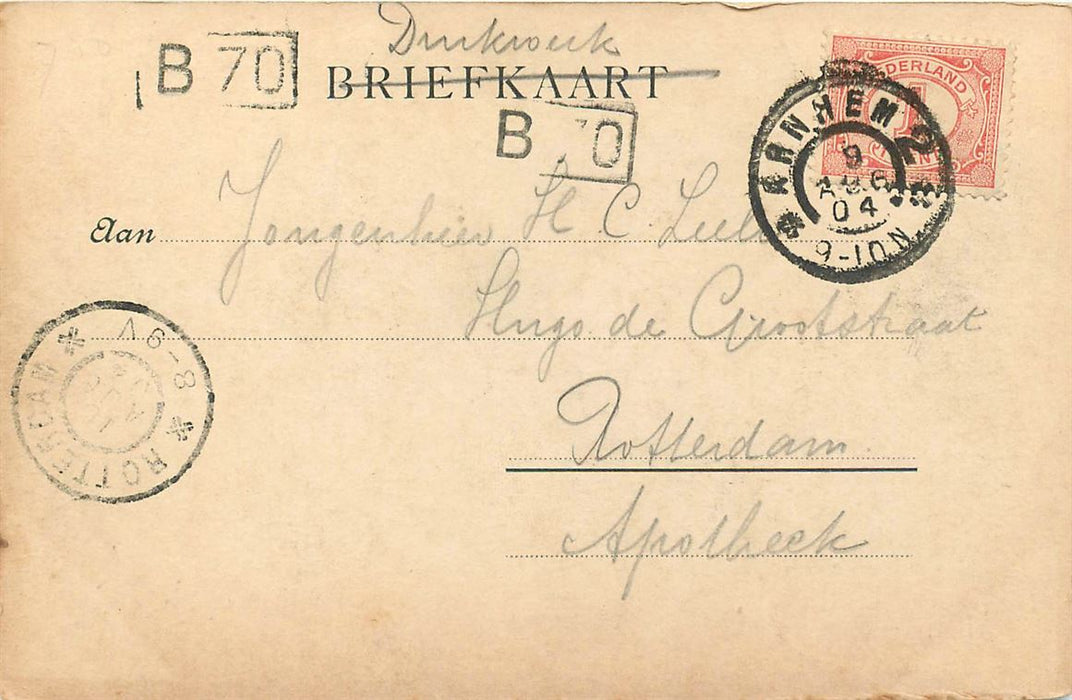 Drukwerk
B 70
BRIEFKAART
B 70
NEDERLAND
1
CENT
ARNHEM 2
9
AUG
04
9-10N
Aan Jongenheer H C
Hugo de Grootstraat
Rotterdam
Apotheek
ROTTERDAM
8-9V
AUG